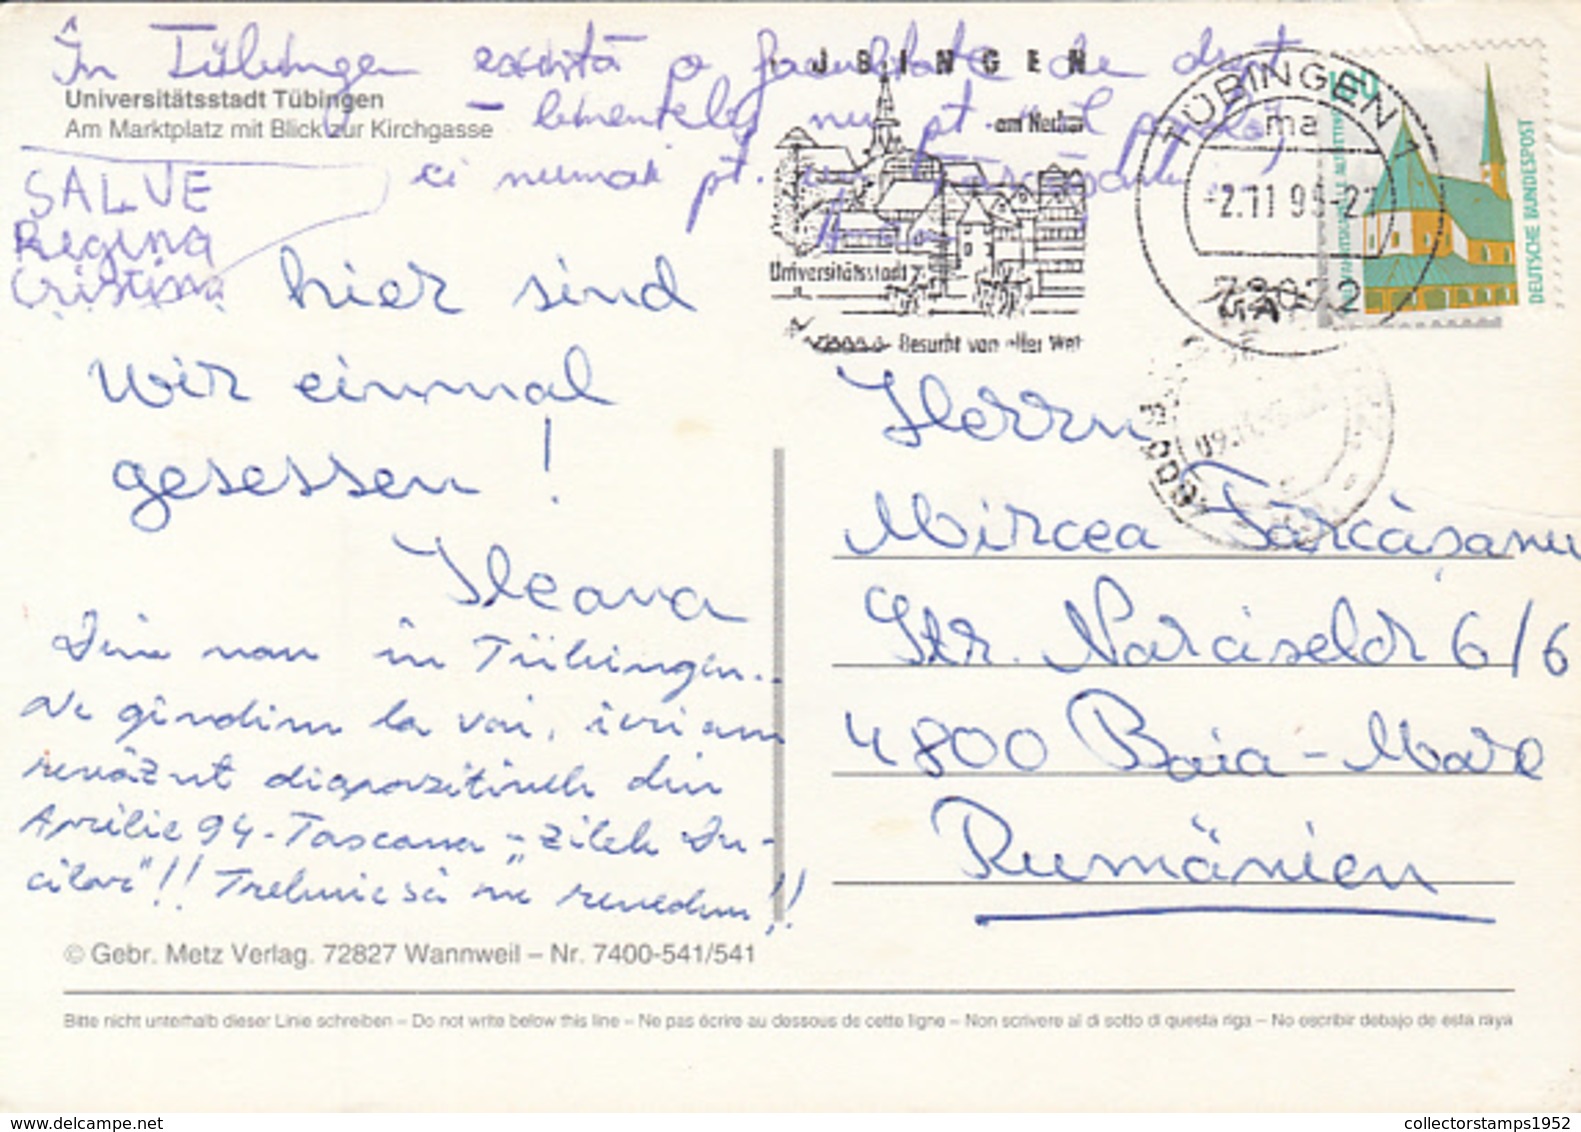 În Tübingen există o facultate de
Universitätsstadt Tübingen
Am Marktplatz mit Blick zur Kirchgasse
nu pt.
ci numai pt.
SALVE
Regina
Cristina
TÜBINGEN
am Neckar
Universitätsstadt
Besucht von aller Welt
TÜBINGEN 1
ma
-2.11.95-21
72072
100
DEUTSCHE BUNDESPOST
hier sind
wir einmal
gesessen!
Ileana
Din nou în Tübingen..
Ne gîndim la voi, ieri am
revăzut diapozitivele din
Aprilie 94 - Toscana - "Zilele Du-
cilor"!! Trebuie să ne revedem!!
Herrn
Mircea Fărcășanu
Str. Narciselor 6/6
4800 Baia-Mare
Rumänien
© Gebr. Metz Verlag. 72827 Wannweil – Nr. 7400-541/541
Bitte nicht unterhalb dieser Linie schreiben – Do not write below this line – Ne pas écrire au dessous de cette ligne – Non scrivere al di sotto di questa riga – No escribir debajo de esta raya
www.delcampe.net
collectorstamps1952